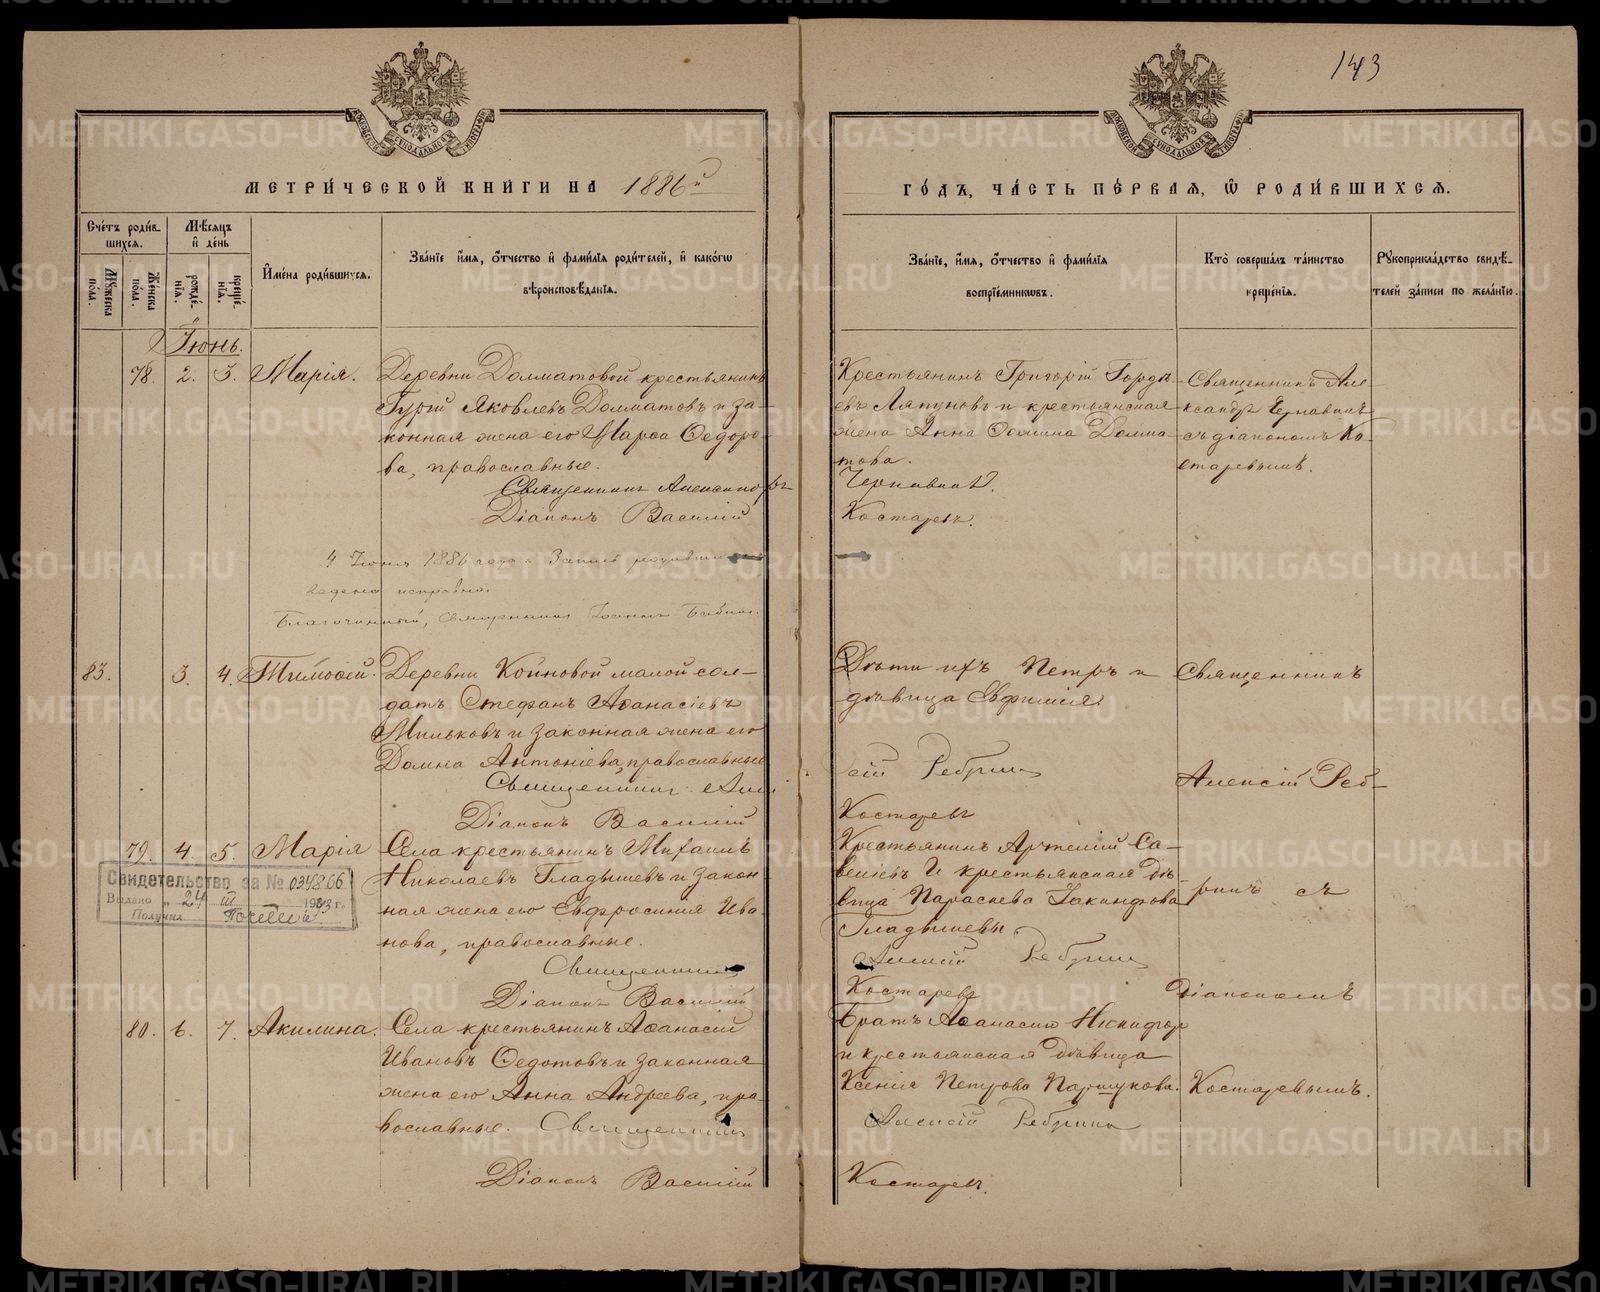 143
МЕТРИ́ЧЕСКОЙ КНИ́ГИ НА 1886й
ГО́ДЪ, ЧА́СТЬ ПЕ́РВАЯ, Ѽ РОДИ́ВШИХСЯ.
Сче́тъ роди́вшихся.
Мѣ́сяцъ и҆ де́нь
Мужеска по́ла.
Же́нска по́ла.
рожде́нїя.
креще́нїя.
И҆мена́ роди́вшихся.
Зва́нїе и҆́мя, ѻ҆́тчество и҆ фами́лїя роди́телей, и҆ како́гѡ
вѣроисповѣ́данїя.
Зва́нїе, и҆́мя, ѻ҆́тчество и҆ фами́лїя
воспрїе́мникѡвъ.
Кто̀ соверша́лъ та́инство
креще́нїя.
Рꙋкоприкла́дство свидѣ́-
телей за́писи по жела́нїю.
Іюнь.
78. 2. 3. Марія.
Деревни Долматовой крестьянинъ
Гурій Яковлевъ Долматовъ и за-
конная жена его Марѳа Ѳедоро-
ва, православные.
Священникъ Александръ
Діаконъ Василій
Крестьянинъ Григорій Гордѣ-
евъ Ляпуновъ и крестьянская
жена Анна Долма-
това.
Чернавинъ.
Костаревъ.
Священникъ Але-
ксандръ Чернавинъ
съ діакономъ Ко-
старевымъ.
4 Іюня 1886 года Запись
ведена исправно.
Благочинный, Священникъ Іоаннъ
83. 3. 4. Тимоѳей.
Деревни Койновой малой сол-
датъ Стефанъ Аѳанасіевъ
Мильковъ и законная жена его
Домна Антоніева, православные
Священникъ Алек
Діаконъ Василій
Дѣти ихъ Петръ и
дѣвица Евфимія.
сій Ребринъ
Костаревъ
Священникъ
Алексій Реб-
79. 4. 5. Марія
Села крестьянинъ Михаилъ
Николаевъ Гладышевъ и закон
ная жена его Евфросинія Ива-
нова, православные.
Священникъ
Діаконъ Василій
Крестьянинъ Артемій Са-
веліевъ и крестьянская дѣ-
вица Параскева Іакинфова
Гладышевы.
Алексій Ребринъ
Костаревъ
ринъ съ
Діакономъ
Свидетельство за № 034866
Выдано „ 24 III 1943 г.
Получил
80. 6. 7. Акилина.
Села крестьянинъ Аѳанасій
Ивановъ Ѳедотовъ и законная
жена его Анна Андреева, пра-
вославные. Священникъ
Діаконъ Василій
Братъ Аѳанасія Никифоръ
и крестьянская дѣвица
Ксенія Петрова Паршукова.
Алексій Ребринъ
Костаревъ.
Костаревымъ.
METRIKI.GASO-URAL.RU